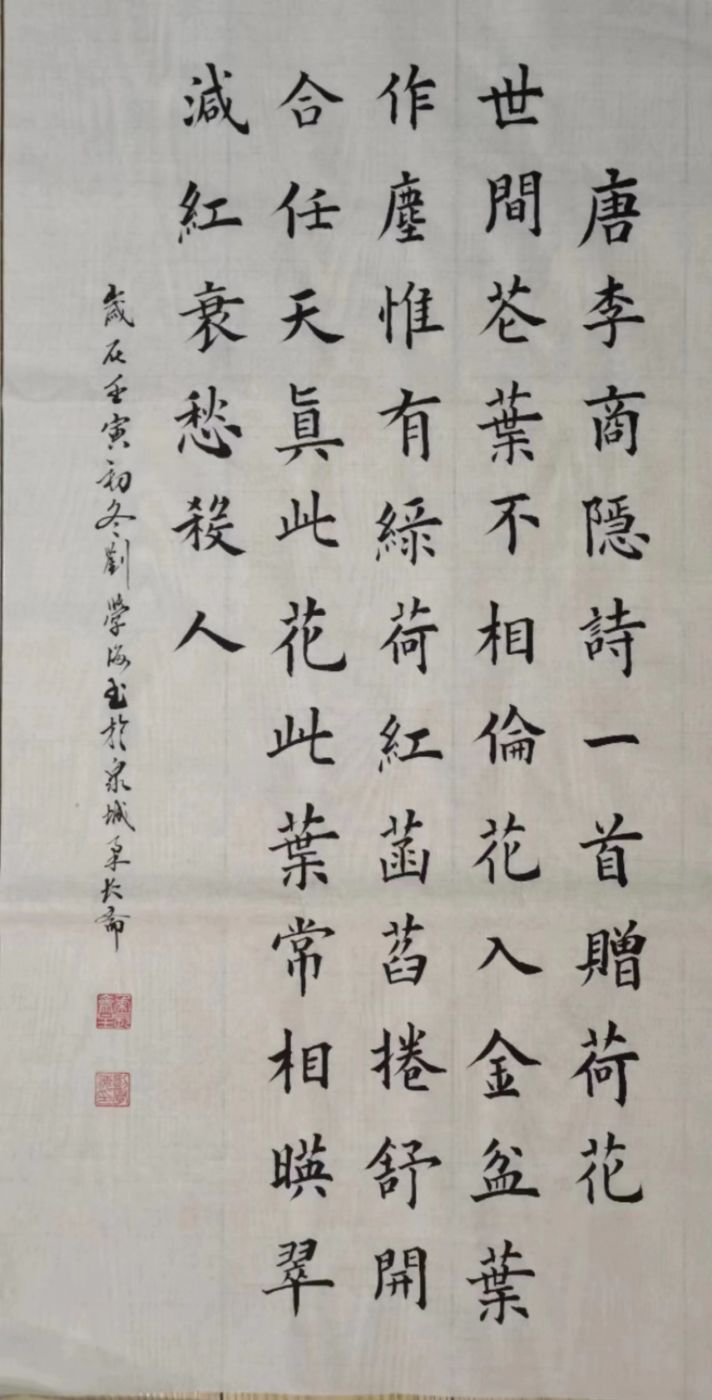 唐李商隱詩一首贈荷花
世間苍葉不相倫花入金盆葉
作塵惟有綠荷紅菡萏捲舒開
合任天真此花此葉常相暎翠
減紅衰愁殺人
歲在壬寅初冬劉學海書於泉城 齋